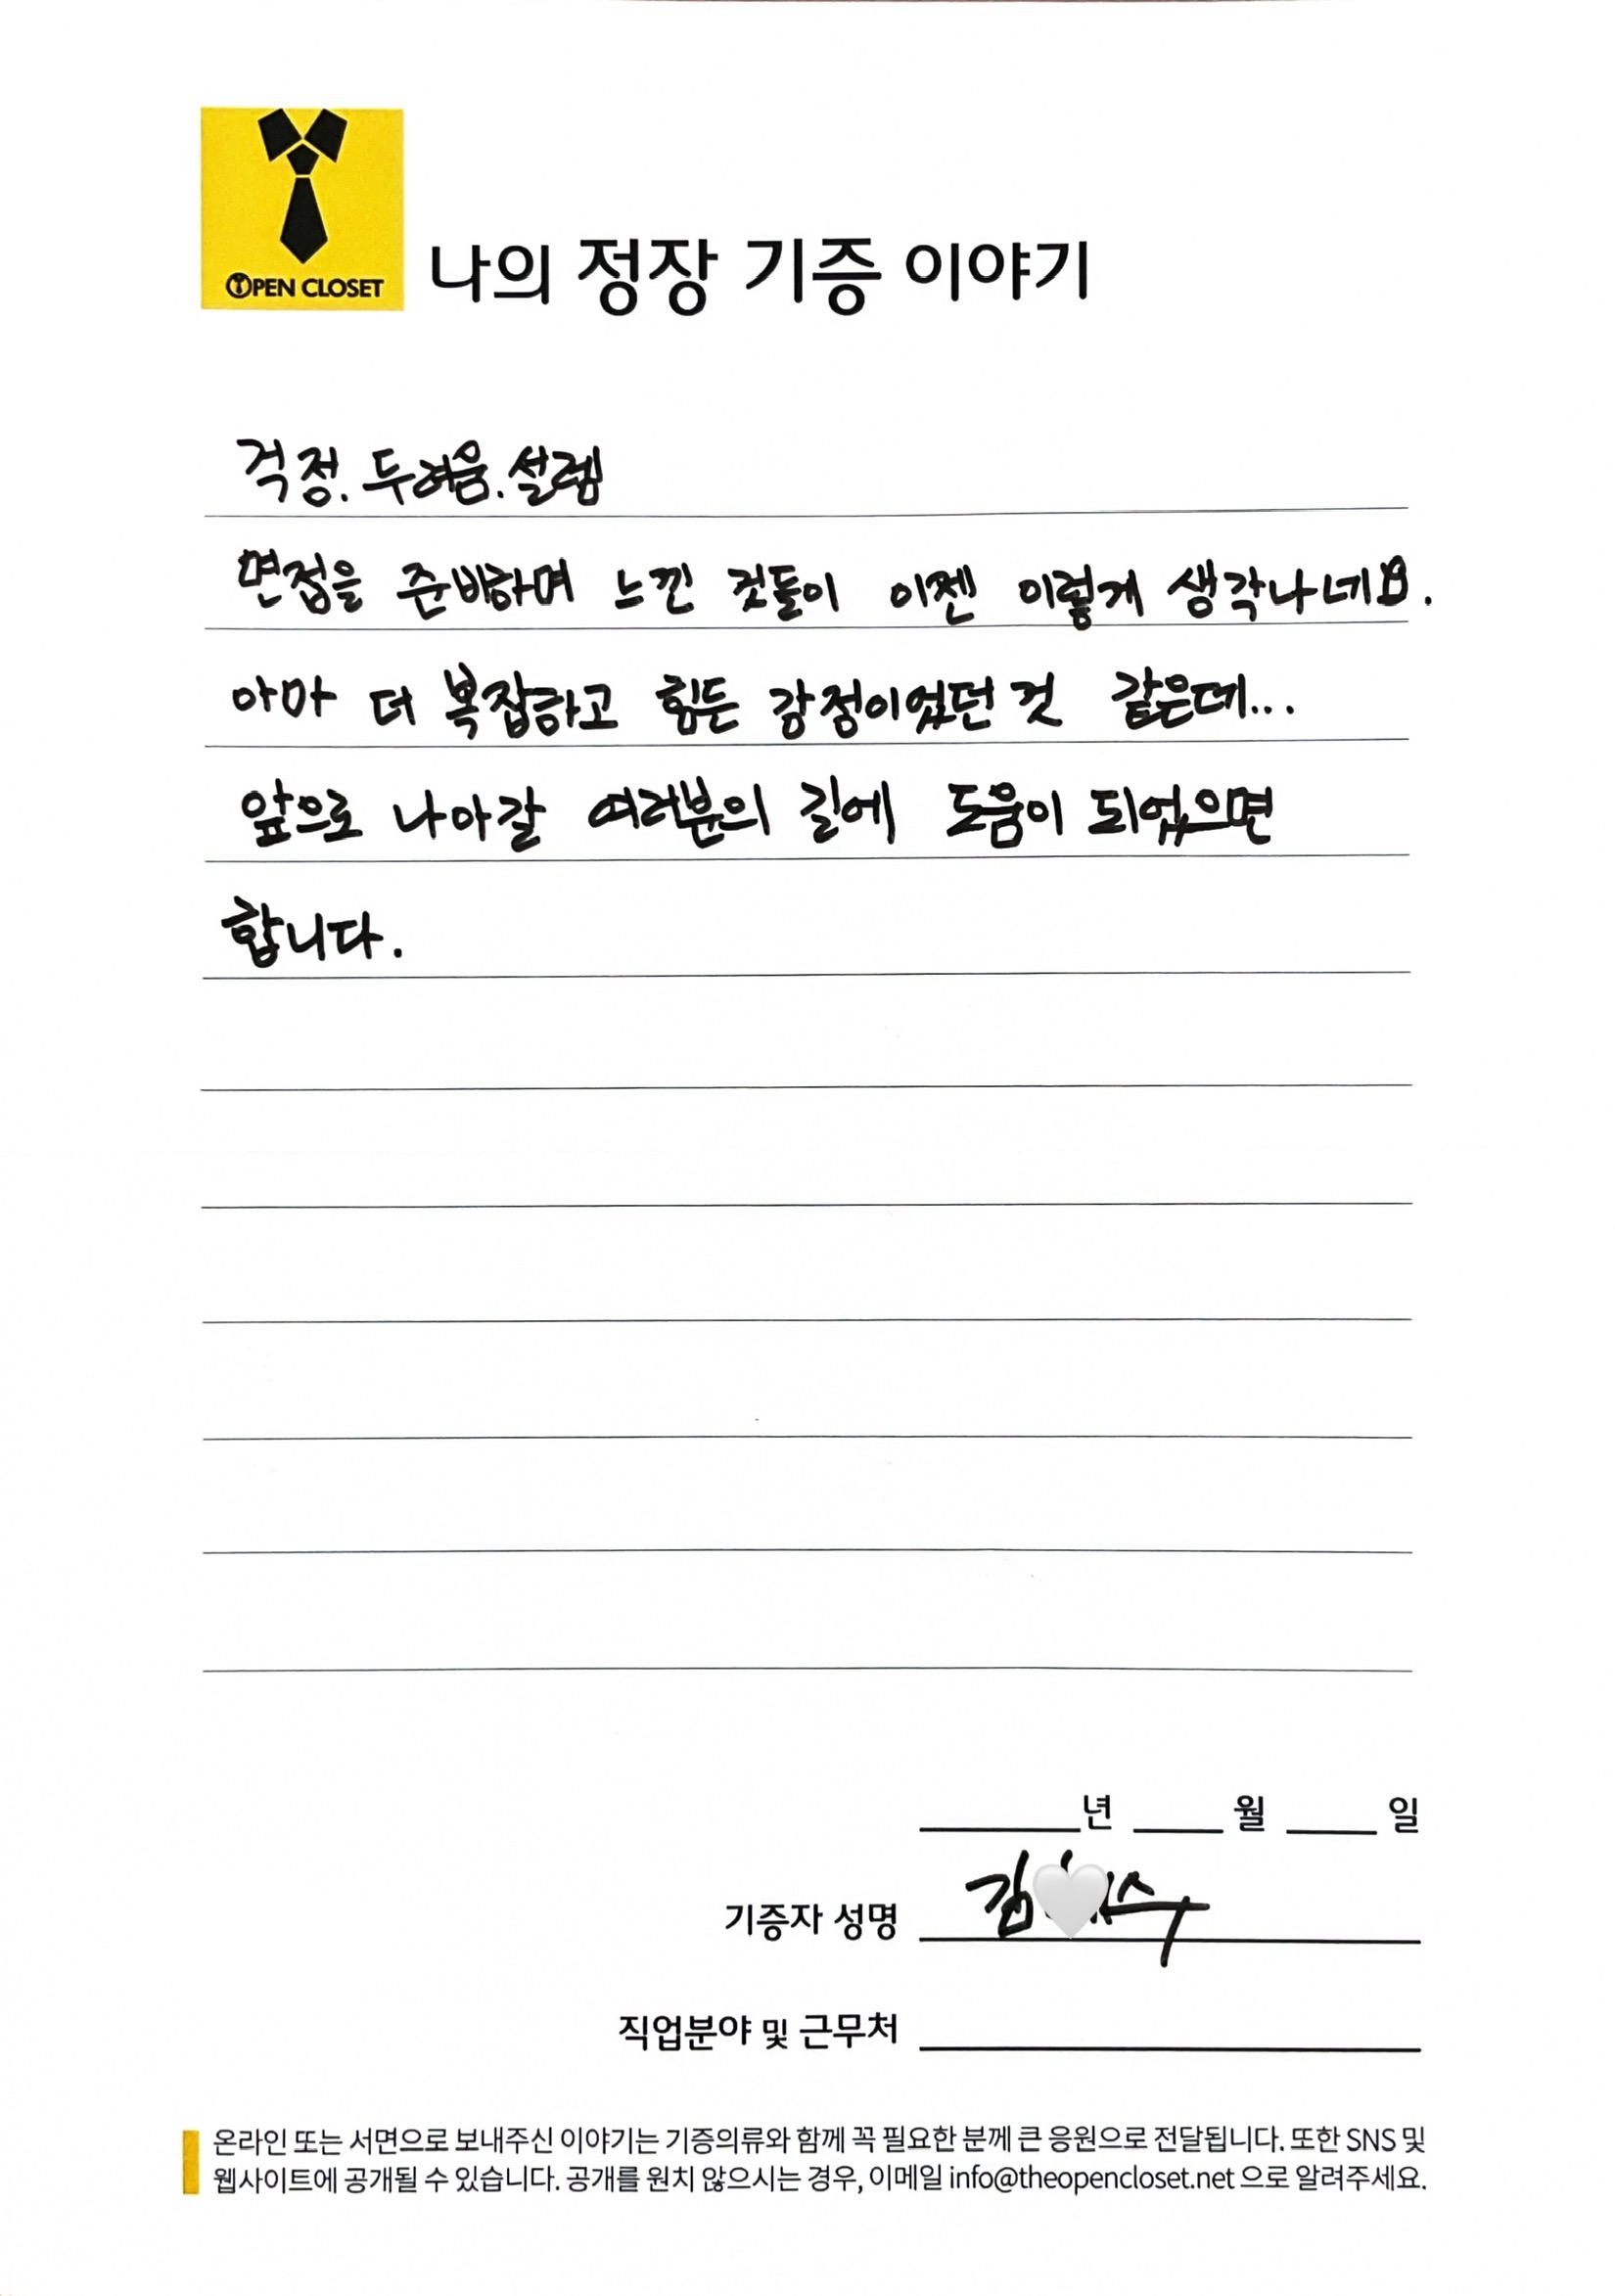 OPEN CLOSET
나의 정장 기증 이야기
걱정. 두려움. 설렘
면접을 준비하며 느낀 것들이 이젠 이렇게 생각나네요.
아마 더 복잡하고 힘든 감정이었던 것 같은데...
앞으로 나아갈 여러분의 길에 도움이 되었으면
합니다.
년 월 일
기증자 성명 김 수
직업분야 및 근무처
온라인 또는 서면으로 보내주신 이야기는 기증의류와 함께 꼭 필요한 분께 큰 응원으로 전달됩니다. 또한 SNS 및
웹사이트에 공개될 수 있습니다. 공개를 원치 않으시는 경우, 이메일 info@theopencloset.net 으로 알려주세요.